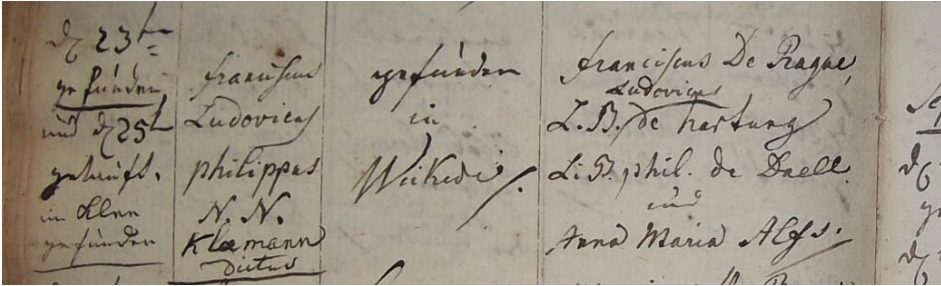 dℓ 23ten
gefunden
und dℓ 25t
getauft.
im Klee
gefunden
Franciscus
Ludovicus
philippus
N. N.
Klæmann
dictus
gefunden
in
Franciscus De Prague,
Ludovicus
L. B. de hartung
L. B. phil. de Daell.
und
Anna Maria Alfs.